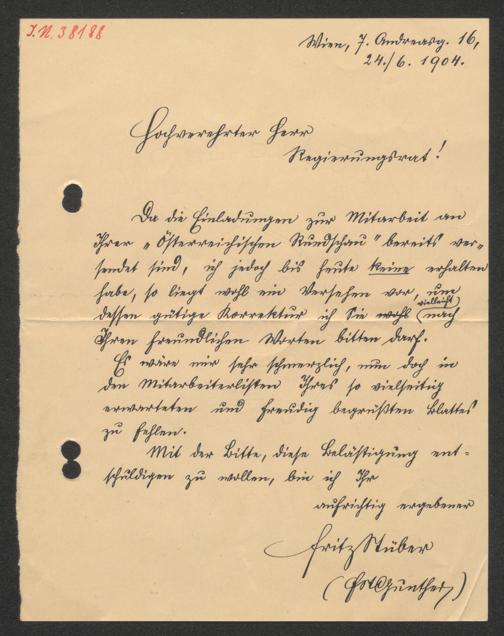 I.N. 38188
Wien, 7. Andreasg. 16,
24./6. 1904.
Hochverehrter Herr
Regierungsrat!
Da die Einladungen zur Mitarbeit an
Ihrer „Österreichischen Rundschau" bereits ver=
sendet sind, ich jedoch bis heute keine erhalten
habe, so liegt wohl ein Versehen vor, um
vielleicht
dessen gütige Korrektur ich Sie wohl (nach
Ihren freundlichen Worten bitten darf.
Es wäre mir sehr schmerzlich, nun doch in
den Mitarbeiterlisten Ihres so vielseitig
erwarteten und freudig begrüßten Blattes
zu fehlen.
Mit der Bitte, diese Belästigung ent=
schuldigen zu wollen, bin ich Ihr
aufrichtig ergebener
Fritz Stüber
Gunther)